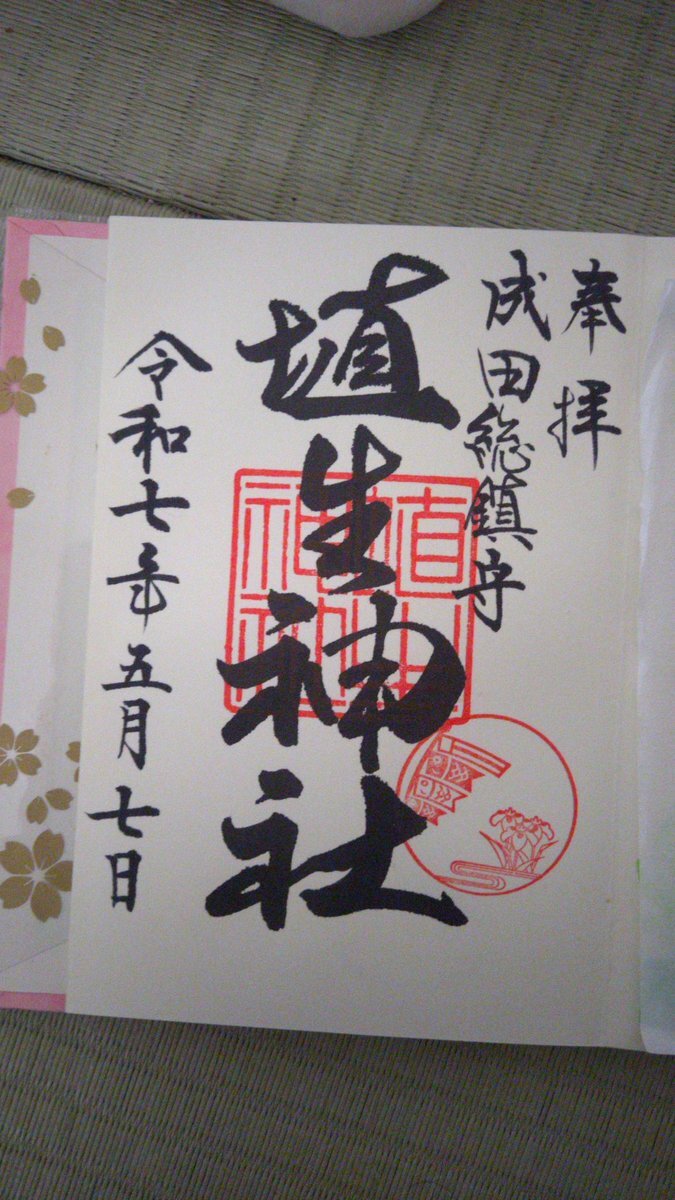 奉拝
成田総鎮守
埴生神社
埴生神社
令和七年五月七日